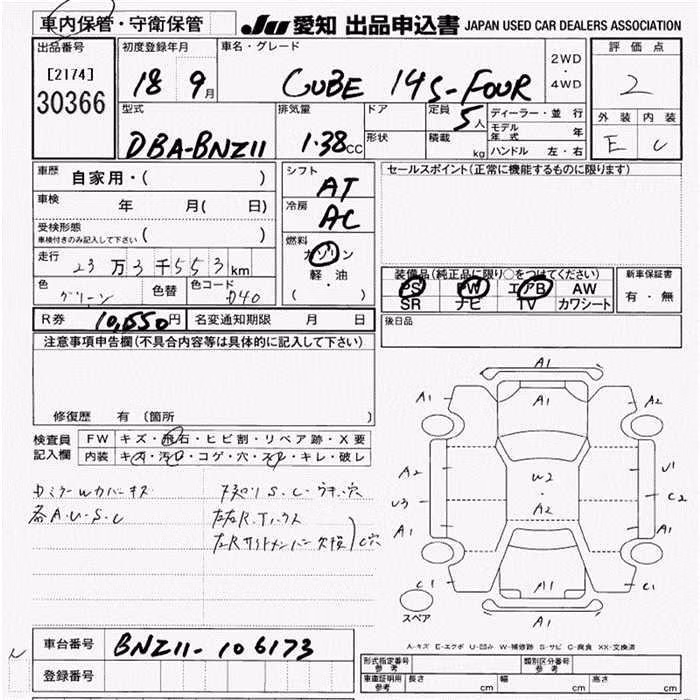 車内保管・守衛保管 JU 愛知 出品申込書 JAPAN USED CAR DEALERS ASSOCIATION
出品番号 初度登録年月 車名・グレード 2WD・4WD 評価点
[2174] 18 9月 CUBE 14S-FOUR 2
30366 型式 排気量 ドア 定員 5人 ディーラー・並行 外装 内装
形状 積載 kg モデル年式 年 E C
DBA-BNZ11 1.38CC ハンドル 左・右
車歴 自家用・( ) シフト AT セールスポイント(正常に機能するものに限ります)
車検 年 月( 日) 冷房 AC
受検形態 車検付きのみ記入して下さい ( )
燃料 ガソリン
走行 23万3千553km 軽・油 装備品(純正品に限り○をつけてください) 新車保証書
色 グリーン 色替 色コード D40 ( ) PS PW エアB AW 有・無
SR ナビ TV カワシート
R券 10,550円 名変通知期限 月 日 後日品
注意事項申告欄(不具合内容等は具体的に記入して下さい)
修復歴 有 〔箇所
検査員記入欄 FW キズ・飛石・ヒビ割・リペア跡・X要
内装 キズ・汚れ・コゲ・穴・スレ・キレ・破レ
A1
A1 A1 A2
A2 W2 U1
U3 C2
A2
A1 A1
C1 A1 C1
A1
各A.U.S.C
スペア
A-キズ E-エクボ U-凹み W-補修跡 S-サビ C-腐食 XX-交換済
車台番号 BNZ11-106173
形式指定番号 参考 類別区分番号 参考
登録番号
車庫証明用 参考 長さ cm 幅 cm 高さ cm